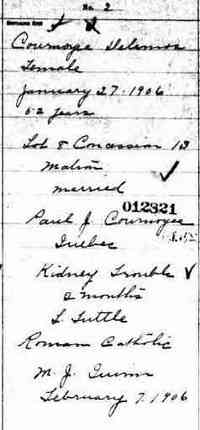 No. 2
Cournoyea Delamos
Female
January 27. 1906
52 years
Lot 8 Concession 13
Matron
married
012821
Paul J. Cournoyea
Quebec
Kidney Trouble
2 months
L. Tuttle
Roman Catholic
M. J. Quinn
February 7. 1906